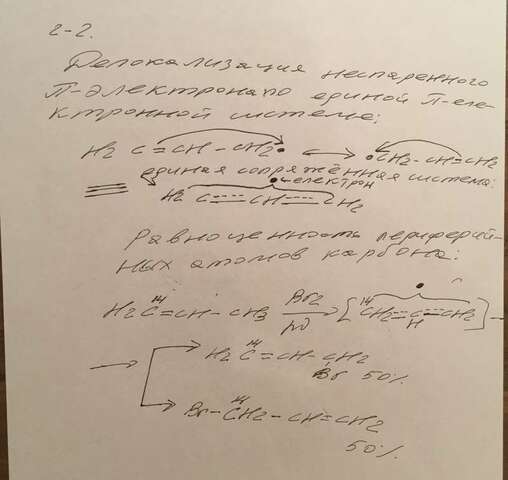 2-2.
Делокализация неспаренного
П-электрона по единой П-эле-
ктронной системе:
H2C=CH-CH2• ⟷ •CH2-CH=CH2
единая сопряжённая система:
•электрон
H2C=CH=CH2
Равноценность периферий-
ных атомов карбона:
H2C=CH-CH3 Br2 → [CH2=C=CH2]-
H
→ H2C=CH-CH2
Br 50%
Br-CH2-CH=CH2
50%